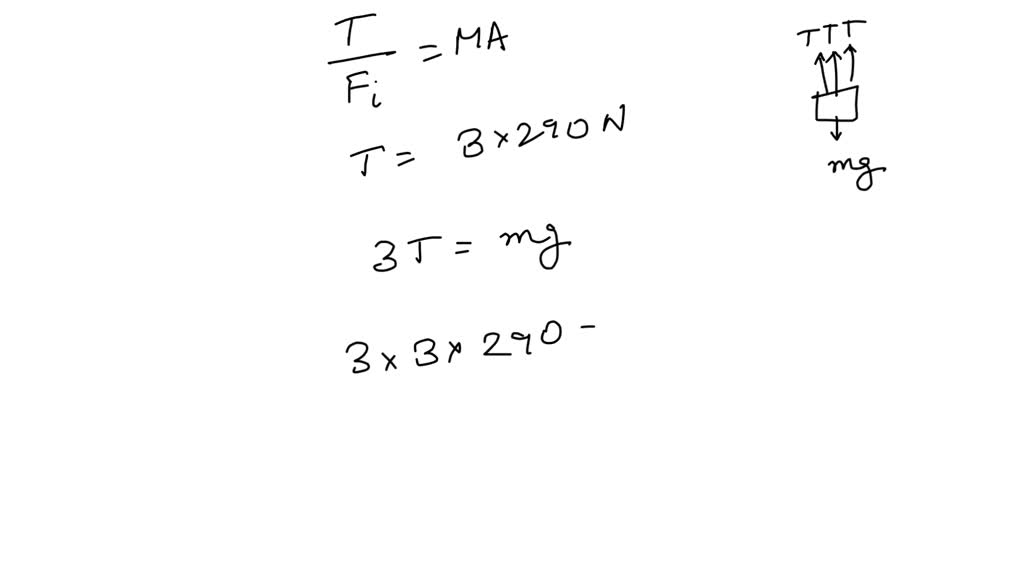 T/Fi = MA
T = 3 × 290 N
3T = mg
3 × 3 × 290 =
T T T
mg